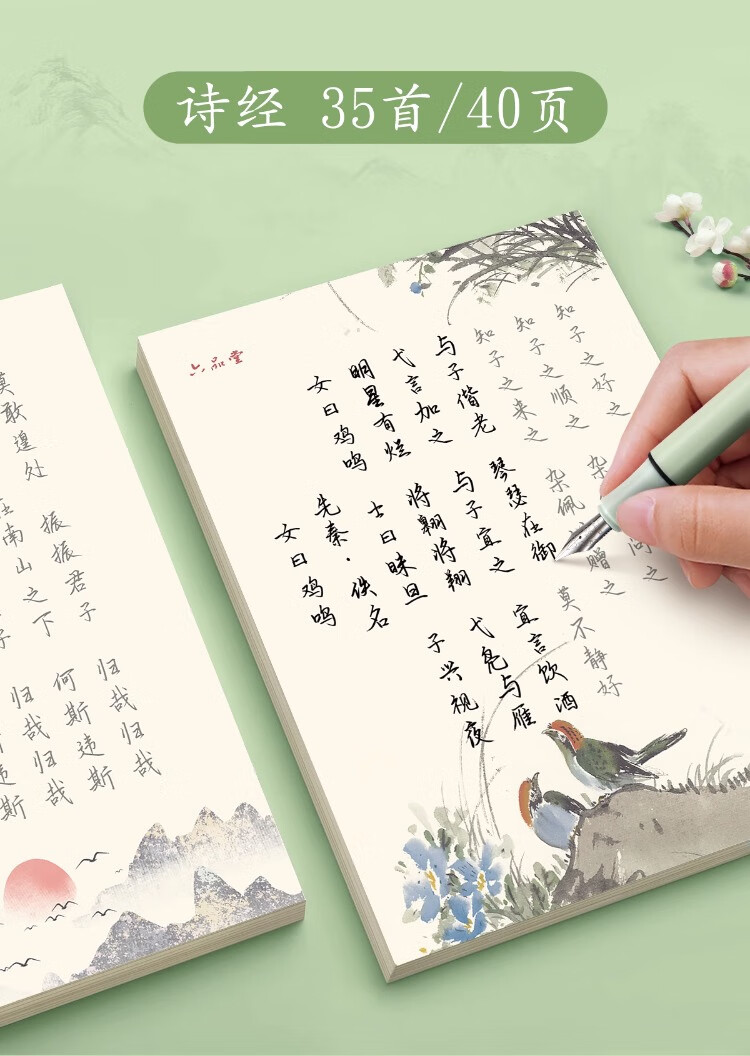 诗经 35首/40页
六品堂
莫敢遑处
振振君子
归哉归哉
在南山之下
何斯违斯
子
归哉归哉
违斯
女曰鸡鸣
先秦·佚名
女曰鸡鸣
士曰昧旦
子兴视夜
明星有烂
将翱将翔
弋凫与雁
弋言加之
与子宜之
宜言饮酒
与子偕老
琴瑟在御
莫不静好
知子之来之
杂佩赠之
知子之顺之
杂问之
知子之好之